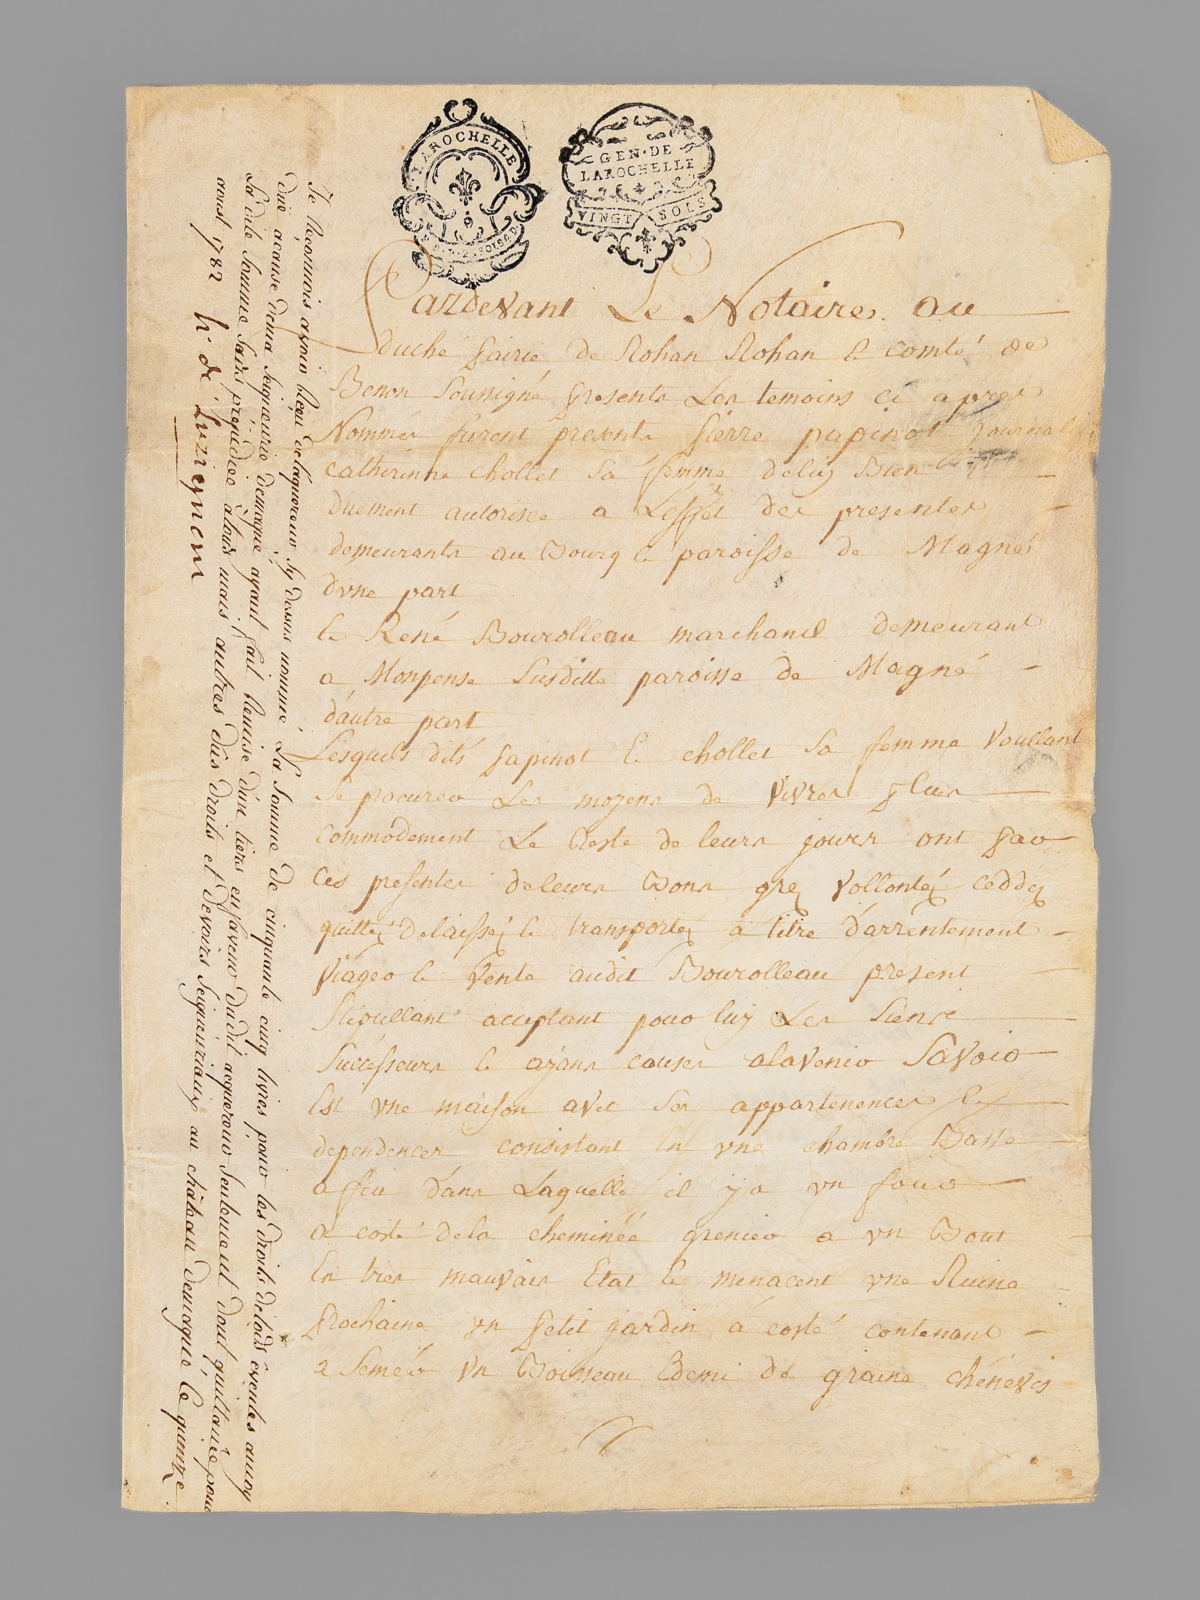 LAROCHELLE
GEN·DE
LAROCHELLE
VINGT SOLS
Pardevant Le Notaire au
duché pairie de Rohan Rohan & comté de
Benon soussigné presents Les temoins ci apres
Nommés furent presents pierre papinot Journallier
catherinne chollet sa femme deluy Bien
duement autorisée a Leffet des presentes
demeurants au Bourg & paroisse de Magné
dvne part
& René Bourolleau marchand demeurant
a Monpense susditte paroisse de Magné
d'autre part
Lesquels dits papinot & chollet sa femme voullant
se procurer Les moyens de vivres plus
commodement Le Reste de leurs jours ont par
ces presentes deleurs Bons grez vollontéz ceddez
quittéz delaisséz & transportéz a titre d'arrentement
viager & vente audit Bourolleau present
stipullant acceptant pour luy Les siens
successeurs & ayans causes alavenir Savoir
Est vne maison avec ses appartenences &
dependences consistant En vne chambre Basse
a feu dans Laquelle il y a vn four
a costé dela cheminéé grenier a vn Bout
En tres mauvais Etat & menacent vne Ruine
prochaine vn petit jardin á costé contenant
a semér vn Boisseau & demi de graine chénevis
Je Reconnois avoir Reçu delaquereur sy dessus nommé La Somme de cinquante cinq livres pour les droits delods & ventes a moy
due acause dema seigneurie demagné ayant fait Remise d'un tiers enfaveur dudit acquereur seulement dont quittance pour
La dite somme sans prejudice alods mais autres dus droits et devoirs seigneuriaux au château demagné le quinze
aoust 1782 h. de Luzignem